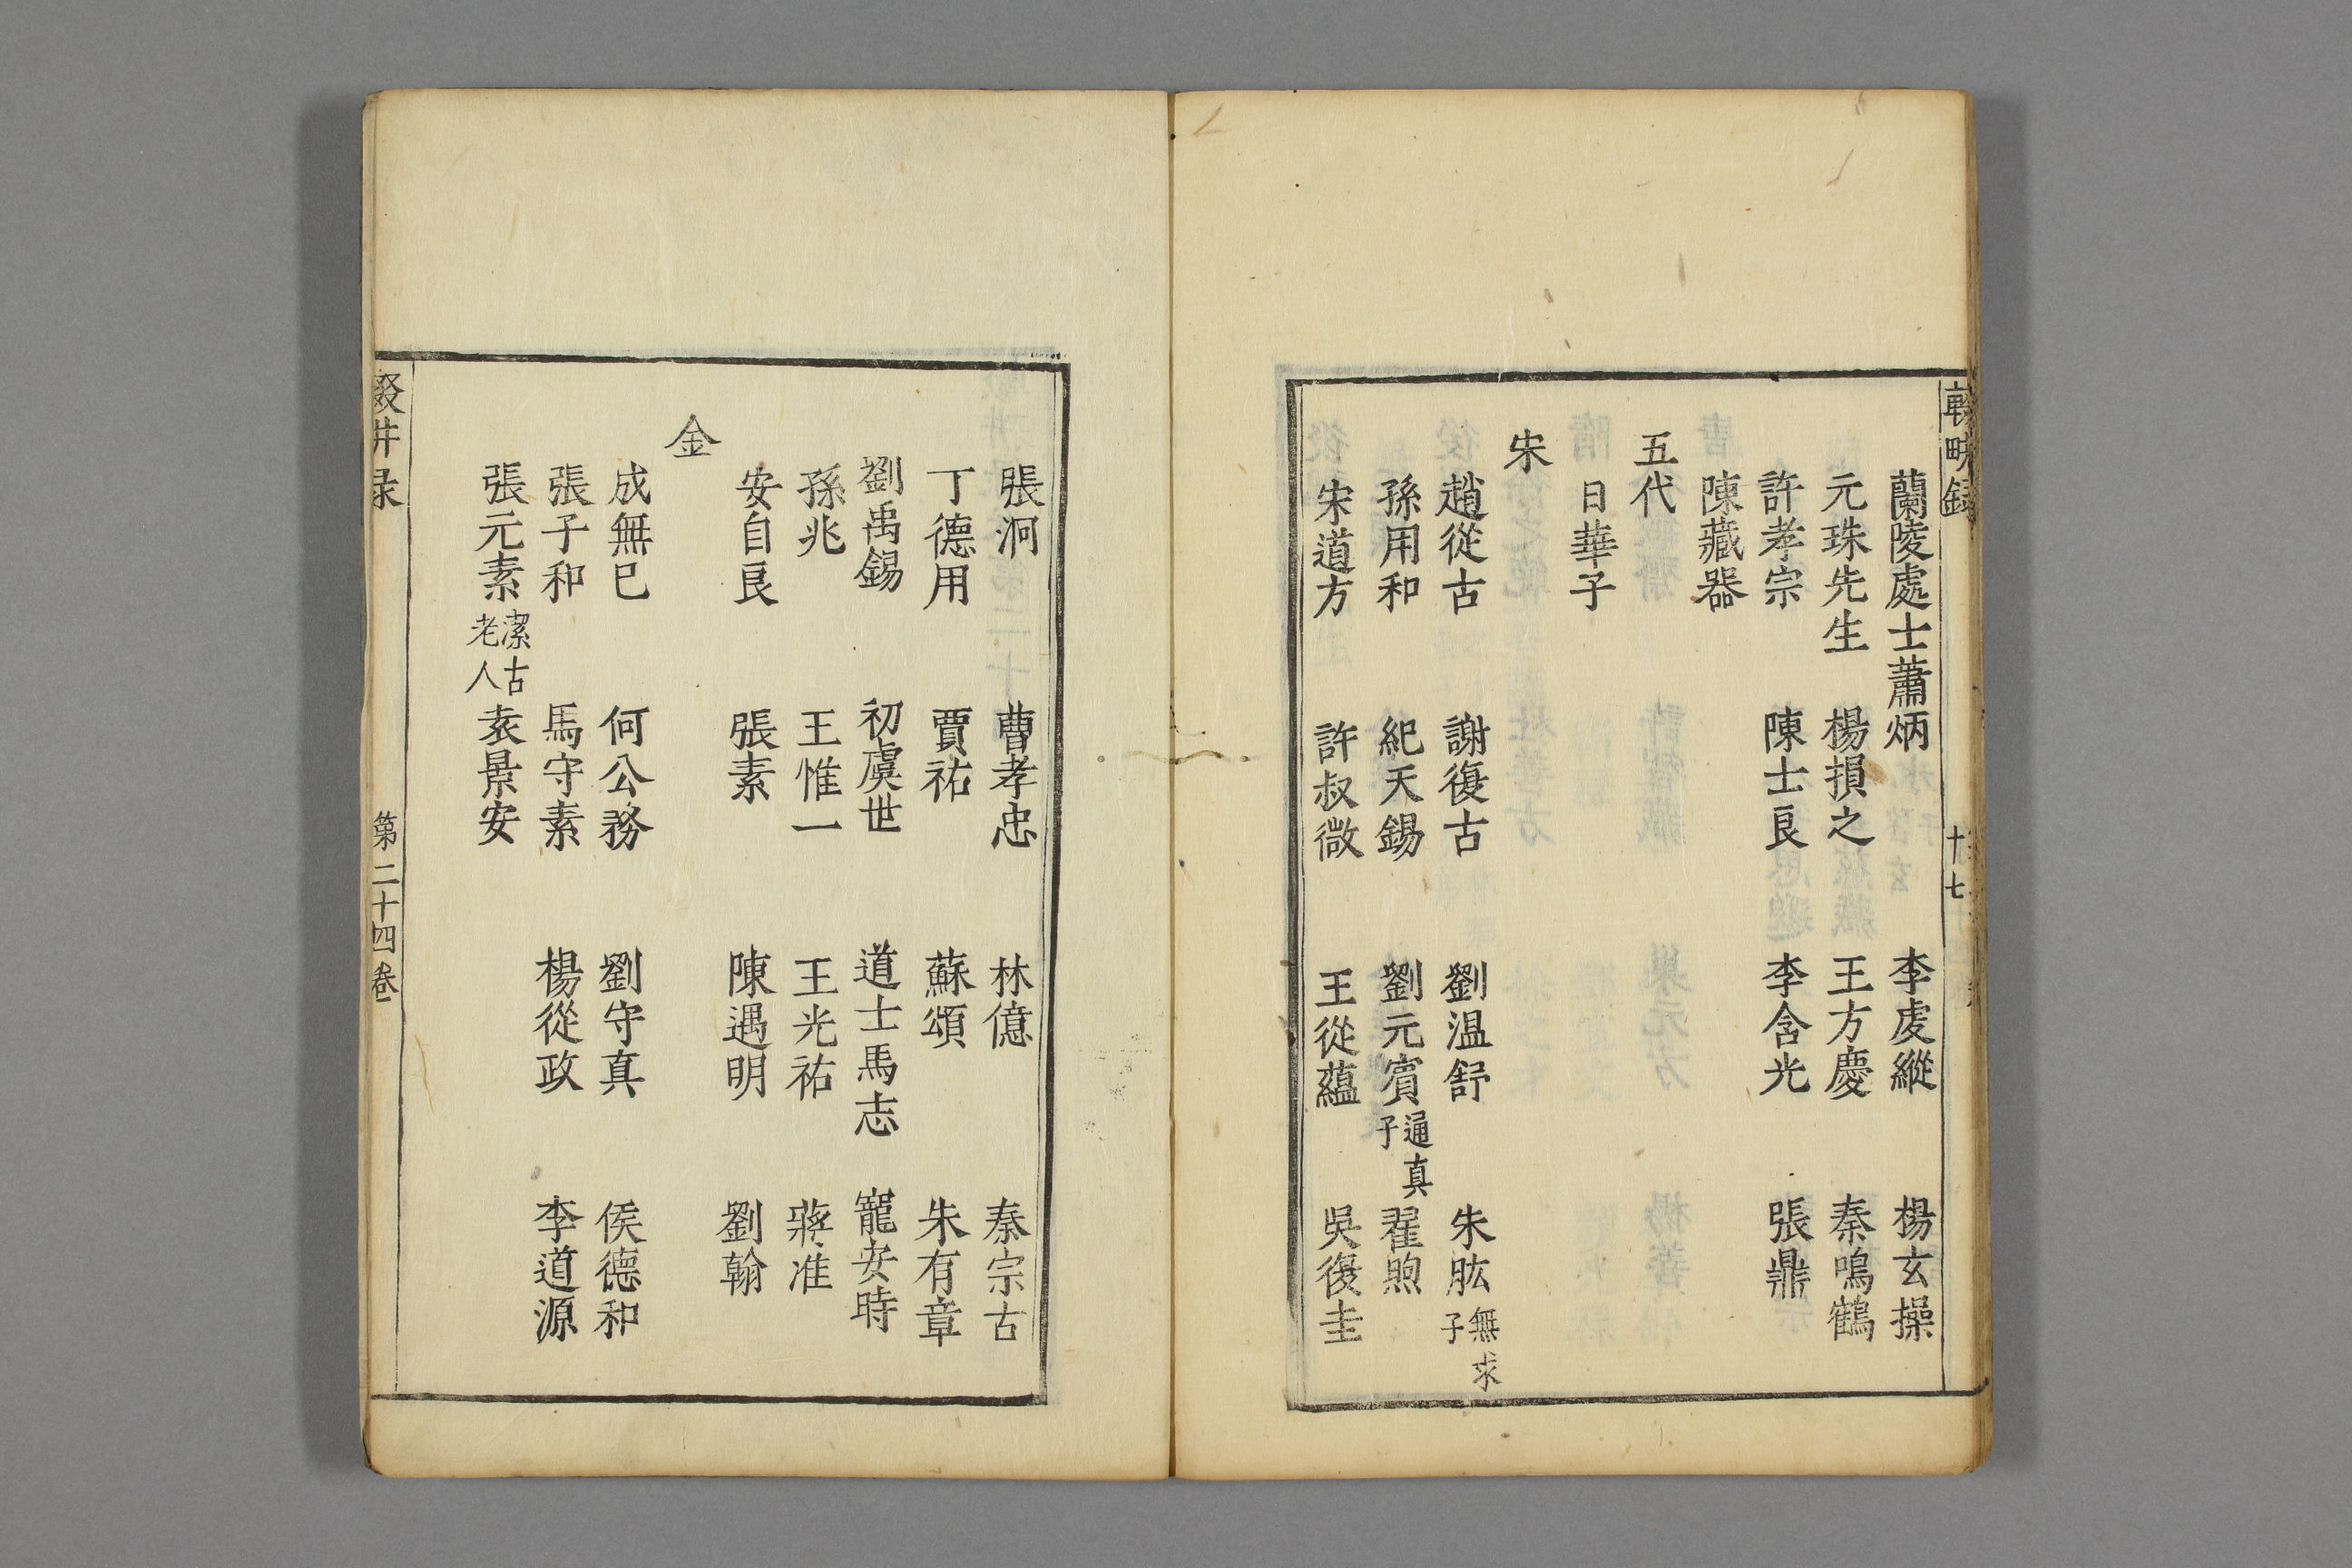 蘭陵處士蕭炳　李虔縱　楊玄操
元珠先生　楊損之　王方慶　秦鳴鶴
許孝宗　陳士良　李含光　張鼎
陳藏器
五代
日華子
宋
趙從古　謝復古　劉温舒　朱肱無求子
孫用和　紀天錫　劉元賓通真子　翟煦
宋道方　許叔微　王從蘊　吳復圭
十七
張洞　曹孝忠　林億　秦宗古
丁德用　賈祐　蘇頌　朱有章
劉禹錫　初虞世　道士馬志　寵安時
孫兆　王惟一　王光祐　蔣淮
安自良　張素　陳遇明　劉翰
金
成無已　何公務　劉守真　侯德和
張子和　馬守素　楊從政　李道源
張元素潔古老人　袁景安
第二十四卷